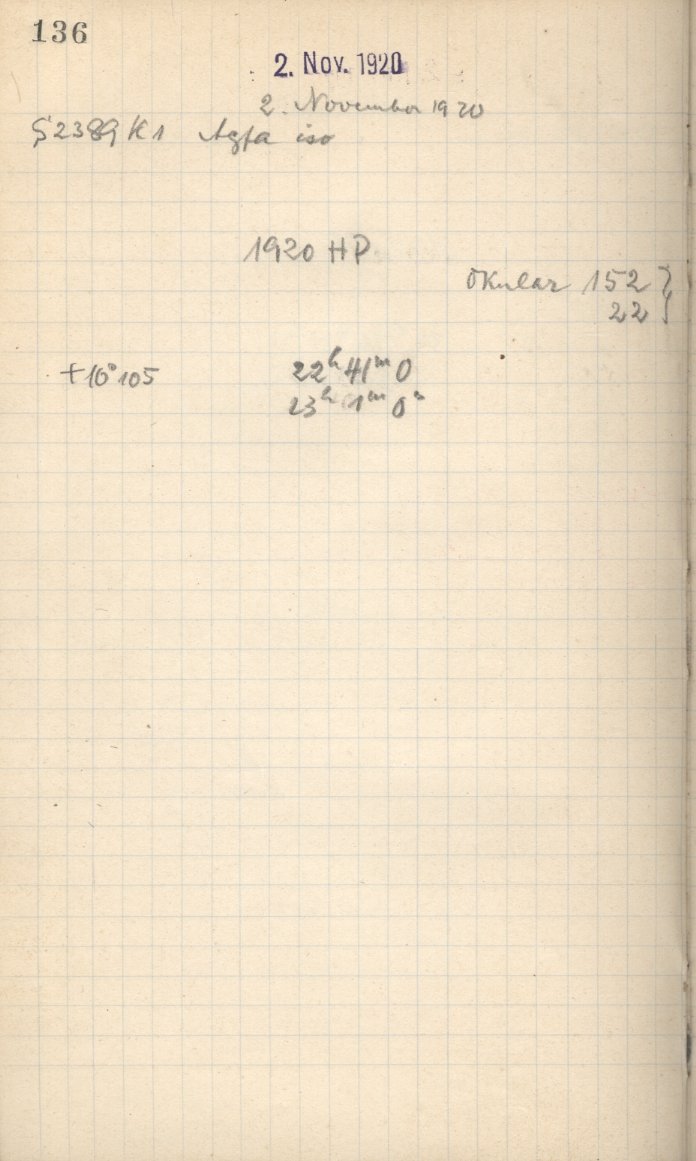 136
2. Nov. 1920
2. November 1920
S2389 K1 Agfa iso
1920 HP
Okular 152 }
22 }
+10°105 22ʰ 41ᵐ 0
23ʰ 1ᵐ 0ˢ